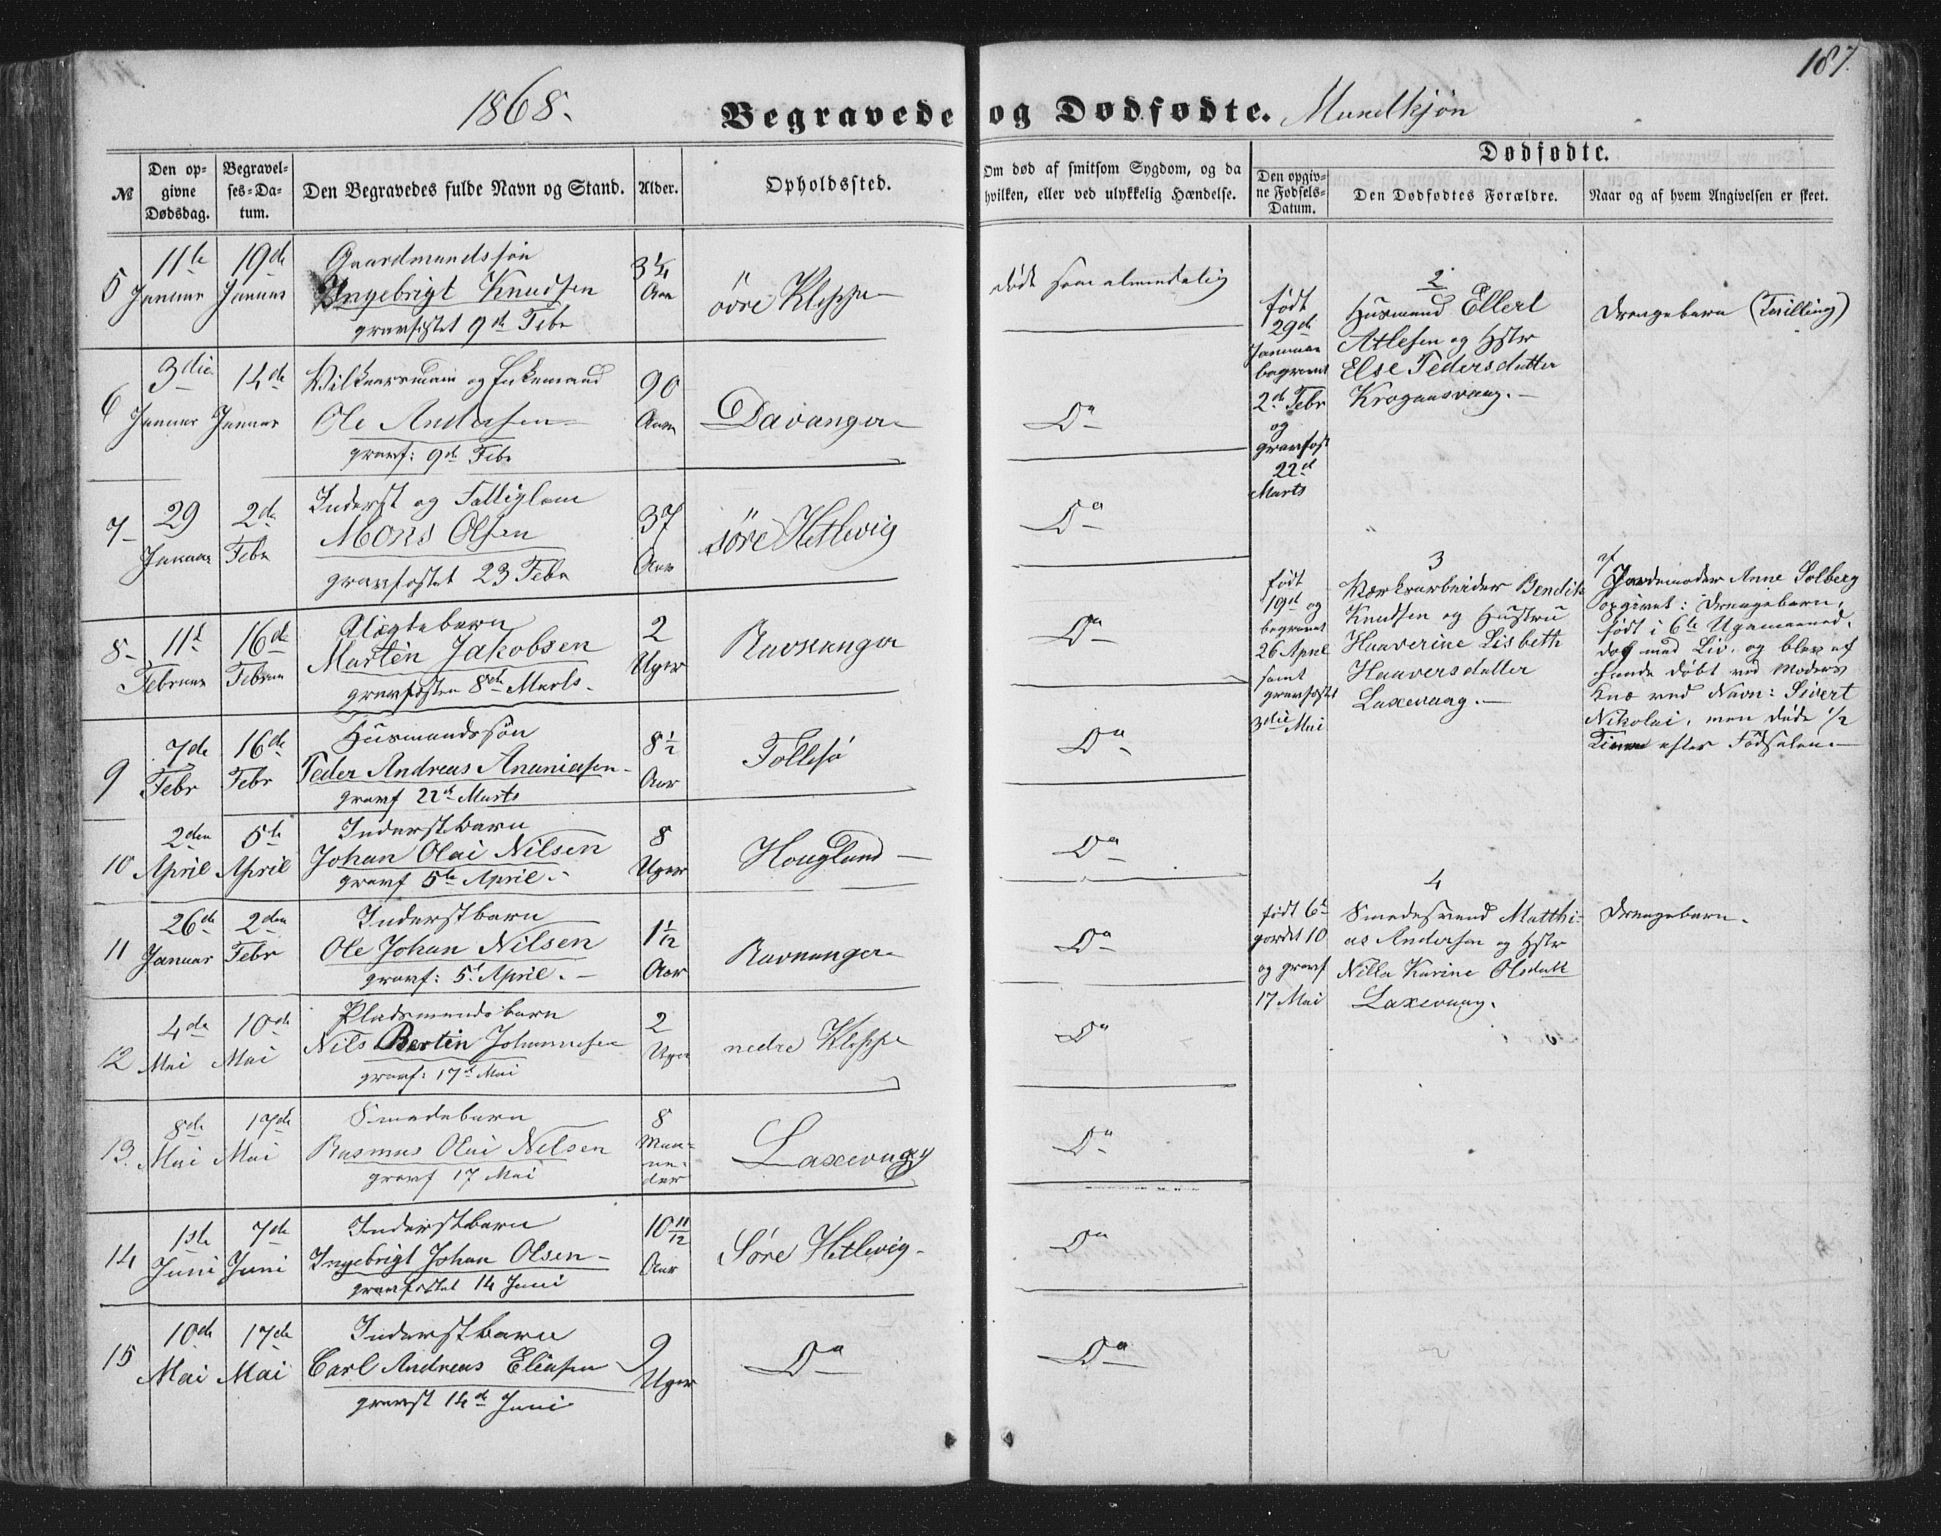 187.
1868.
Begravede og Dødfødte. Mandkjøn
№
Den opgivne Dødsdag.
Begravelses-Datum.
Den Begravedes fulde Navn og Stand.
Alder.
Opholdssted.
Om død af smitsom Sygdom, og da hvilken, eller ved ulykkelig Hændelse.
Dødfødte.
Den opgivne Fødsels-Datum.
Den Dødfødtes Forældre.
Naar og af hvem Angivelsen er skeet.
5
11te Januar
19de Januar
Gaardmandssøn
Ingebrigt Knudsen
gravfæstet 9de Febr
3¼ Aar
øvre Kleppe
død som almindelig
6
3die Januar
14de Januar
Vilkaarsmand og Enkemand
Ole Andersen
gravf: 9de Febr
90 Aar
Davanger
Do
7
29 Januar
2de Febr
Inderst og Fattiglem
Mons Olsen
gravfæstet 23 Febr
37 Aar
søre Hetlevig
Do
8
11te Februar
16de Februar
Uægtebarn
Martin Jakobsen
gravfæsten 8de Marts.
2 Uger
Ravnanger
Do
9
7de Febr
16de Febr
Husmandssøn
Peder Andreas Ananiasen
gravf 22de Marts
8½ Aar
Follesø
Do
10
2den April
5te April
Inderstbarn
Johan Olai Nilsen
gravf 5te April.
8 Uger
Hougland
Do
11
26de Januar
2den Febr
Inderstbarn
Ole Johan Nilsen
gravf: 5te April.
1 1/12 Aar
Ravnanger
Do
12
4de Mai
10de Mai
Pladsmandsbarn
Nils Bertin Johannesen
gravf: 17de Mai
2 Uger
nedre Kleppe
Do
13.
8de Mai
17de Mai
Smedebarn
Rasmus Olai Nilsen
gravf 17 Mai
8 Maaneder
Laxevaag
Do
14
1ste Juni
7de Juni
Inderstbarn
Ingebrigt Johan Olsen
gravfæstet 14 Juni
10 11/12 Aar
Søre Hetlevig
Do
15
10de Mai
17de Mai
Inderstbarn
Carl Andreas Eliasen
gravfæst 14de Juni
9 Uger
Do
Do
2
født
29de
Januar
begravet
2de Febr
og
gravfæst
22de
Marts
Husmand Ellert
Atlesen og Hstr
Else Pedersdatter
Krogaasvaag.
Drengebarn (Tvilling)
3
født
19de og
begravet
26 April
samt
gravfæstet
3die Mai
Værksarbeider Bendik
Knudsen og Hustru
Haaverine Lisbeth
Haaversdatter
Laxevaag.
af
Jordemoder Anne Solberg
opgivet: Drengebarn,
født i 6te Ugemaaned,
dog med Liv, og blev af
hende døbt ved Moders
Knæ ved Navn: Sivert
Nikolai, men døde ½
Time efter Fødselen.
4
født 6te
jordet 10
og gravf
17 Mai
Smedesvend Matthi-
as Andersen og Hstr
Nilla Karine Olsdatt
Laxevaag.
Drengebarn.